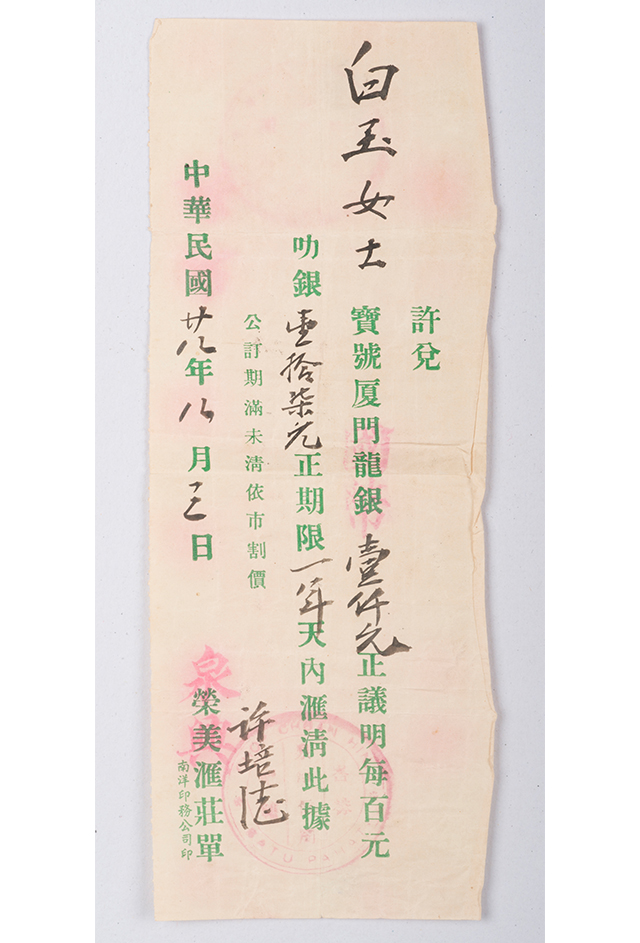 許兌
白玉女士 寶號厦門龍銀壹仟元正議明每百元
叻銀壹拾柒元正期限一年天內滙清此據
公訂期滿未清依市割價
許培
中華民國廿八年八月三日
榮美滙莊單
南洋印務公司印
BATU PAHAT